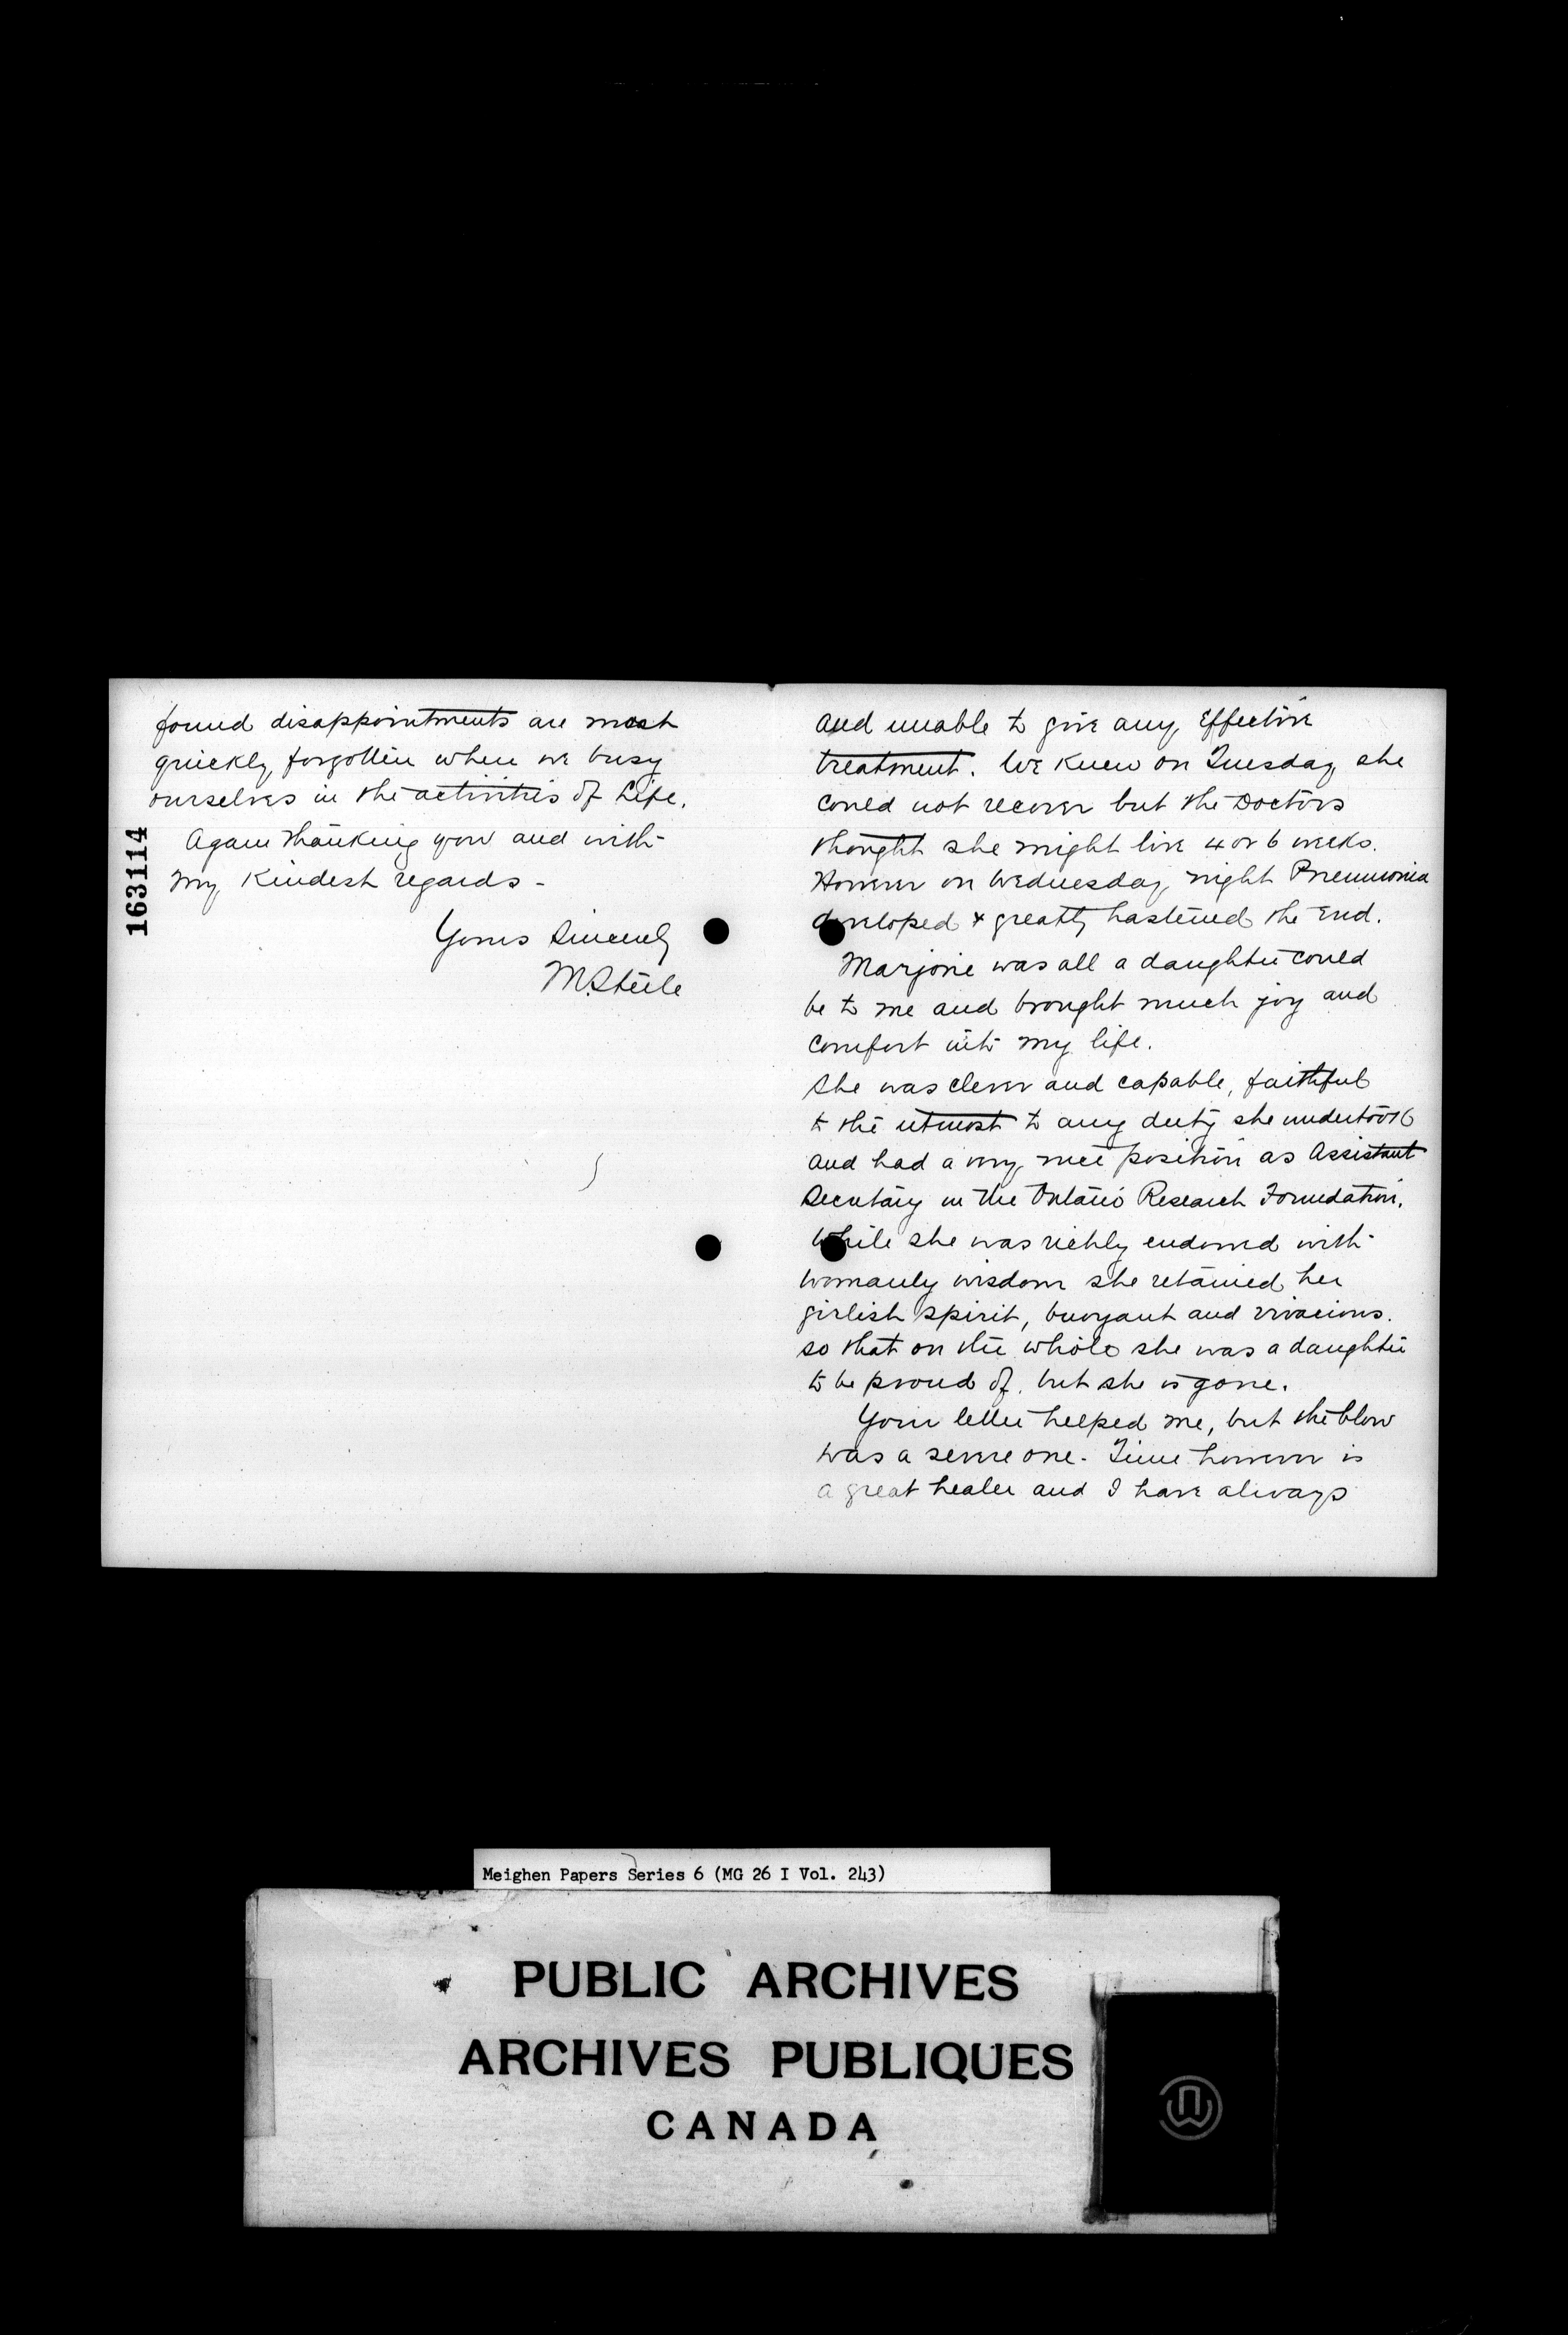 found disappointments are most
quickly forgotten when we busy
ourselves in the activities of Life.
Again thanking you and with
my kindest regards -
Yours Sincerely
M. Steele
163114
and unable to give any Effective
treatment. We knew on Tuesday she
could not recover but the Doctors
thought she might live 4 or 6 weeks.
However on Wednesday night Pneumonia
developed & greatly hastened the End.
Marjorie was all a daughter could
be to me and brought much joy and
comfort into my life.
She was clever and capable, faithful
to the utmost to any duty she undertook
and had a very nice position as Assistant
Secretary in the Ontario Research Foundation.
While she was richly endowed with
womanly wisdom she retained her
girlish spirit, buoyant and vivacious.
so that on the whole she was a daughter
to be proud of. but she is gone.
Your letter helped me, but the blow
was a severe one. Time however is
a great healer and I have always
Meighen Papers Series 6 (MG 26 I Vol. 243)
PUBLIC ARCHIVES
ARCHIVES PUBLIQUES
CANADA